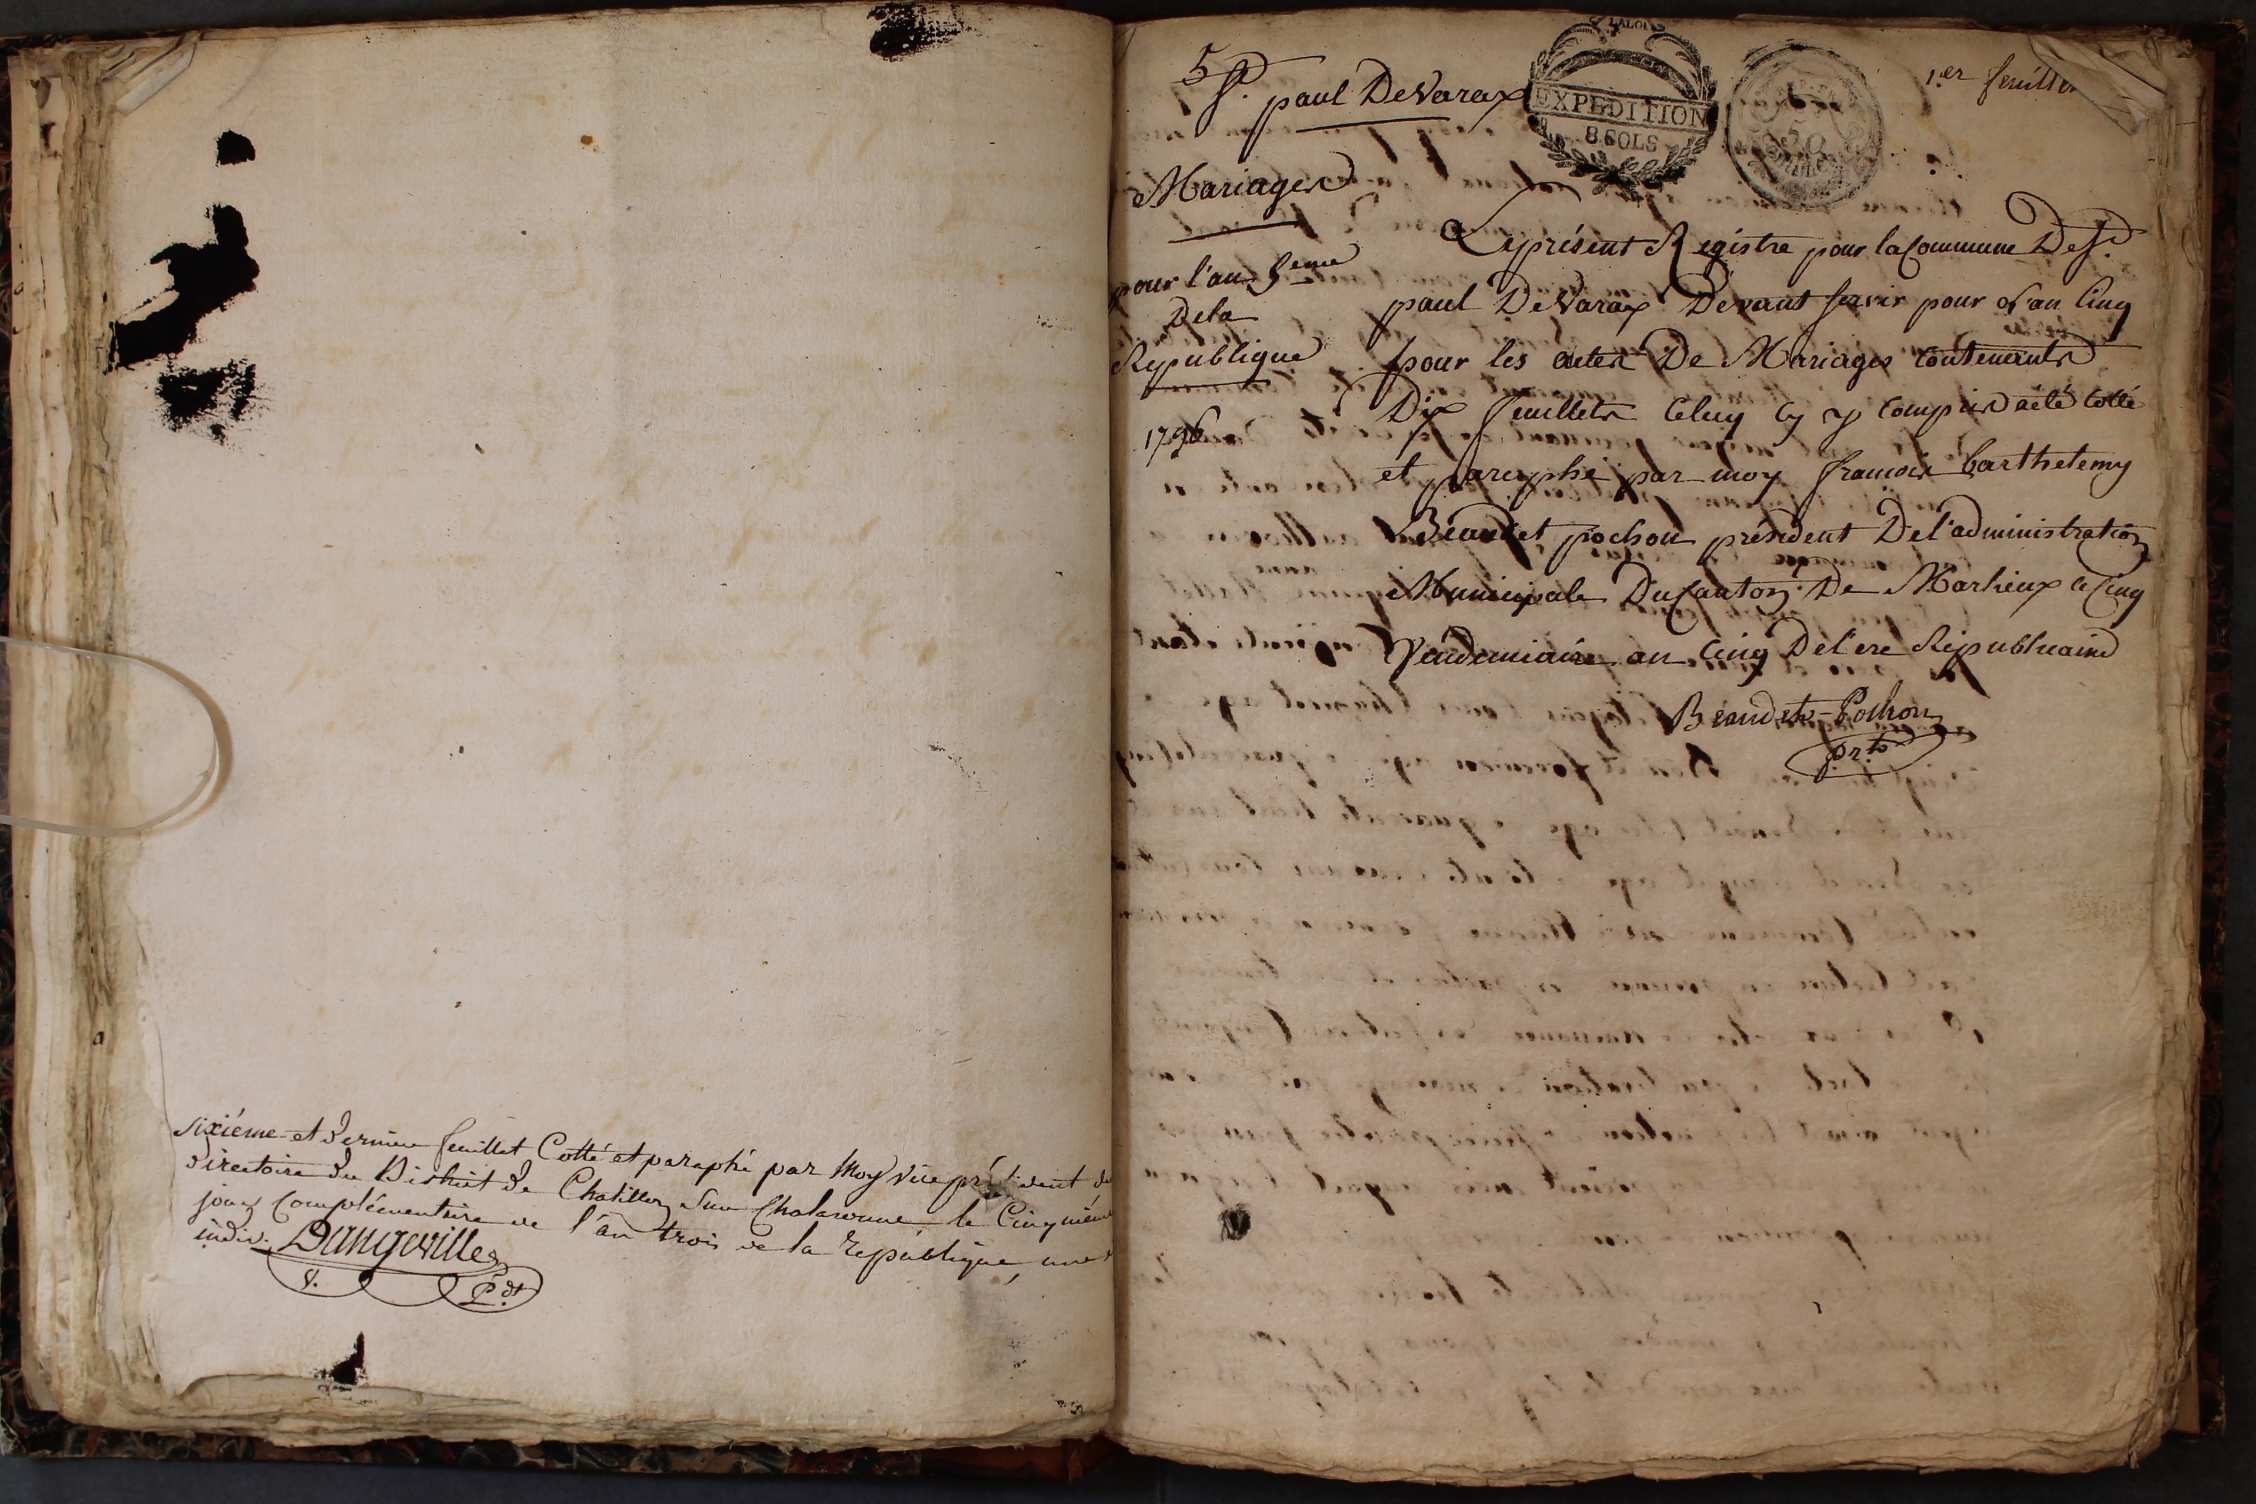 sixiéme et dernier feuillet Cotté et paraphé par Moy vice président du
directoire du District de Chatillon Sur Chalaronne le Cinquième
jour Complémentaire de l'an trois de la république, une et
indiv. Dangeville
V. Pdt
5
St. paul DeVarax
LA LOI
EXPEDITION
8 SOLS
50
1.er feuillet
Mariages
pour l'an 5eme
Dela
Republique
1796
Le présent Registre pour la Commune De St.
paul DeVarax Devant servir pour l'an Cinq
pour les actes De Mariages contenants
Dix feuillets Celuy cy y compris a été cotté
et paraphé par moy françois barthelemy
Béaudet pochon président De l'administration
Municipale Du Canton De Marlieux le Cinq
Vendemiaire an Cinq De l'ere Republicaine
Béaudet-Pochon
prt